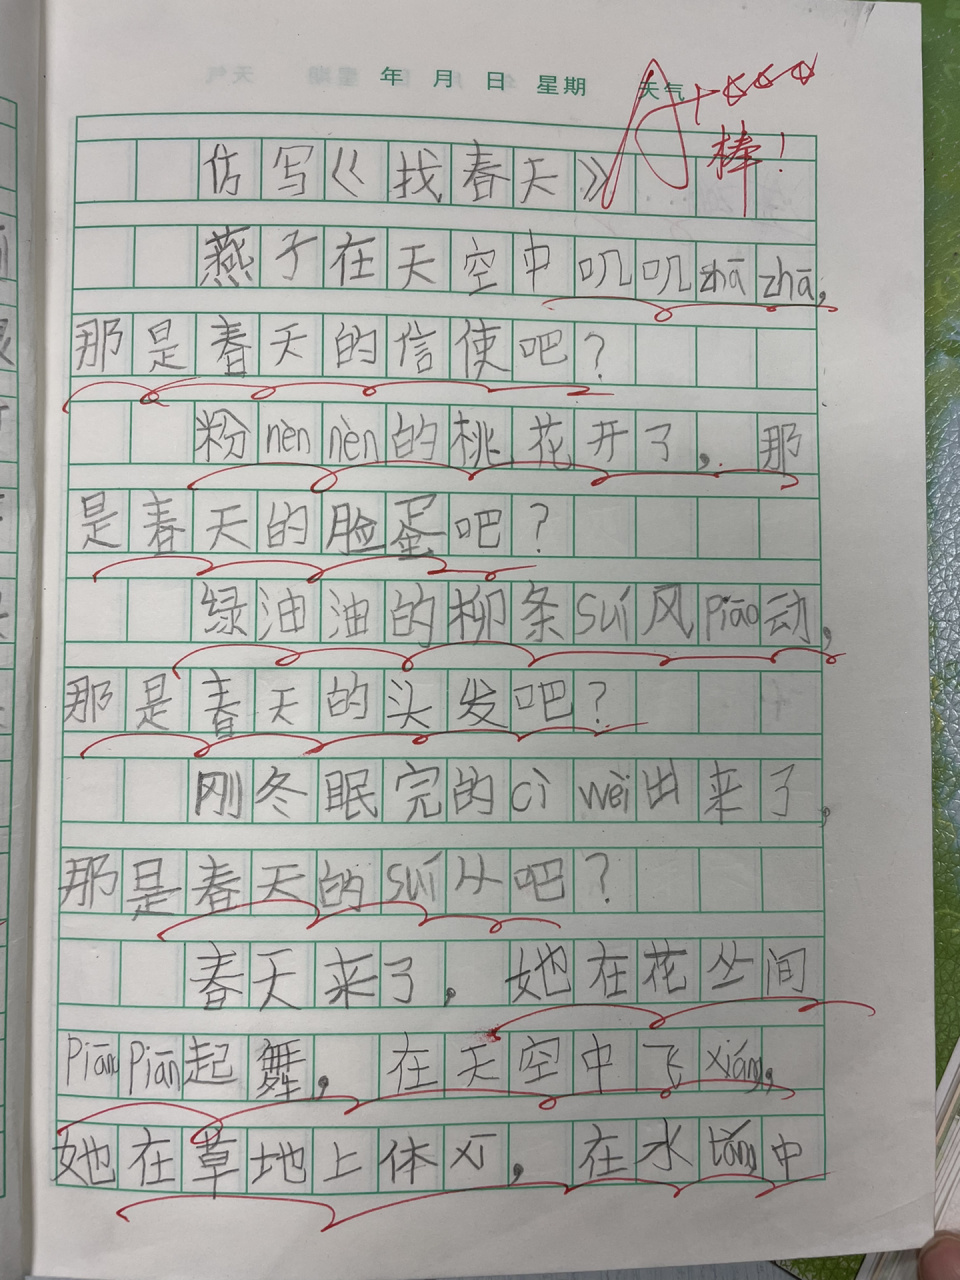 年 月 日 星期 天气
A+☆☆☆
棒！
仿写《找春天》
燕子在天空中叽叽zhāzhā，
那是春天的信使吧？
粉nènnèn的桃花开了，那
是春天的脸蛋吧？
绿油油的柳条suí风piāo动，
那是春天的头发吧？
刚冬眠完的cìwèi出来了，
那是春天的suí从吧？
春天来了，她在花丛间
piānpiān起舞，在天空中飞xiáng，
她在草地上体 ，在水táng中